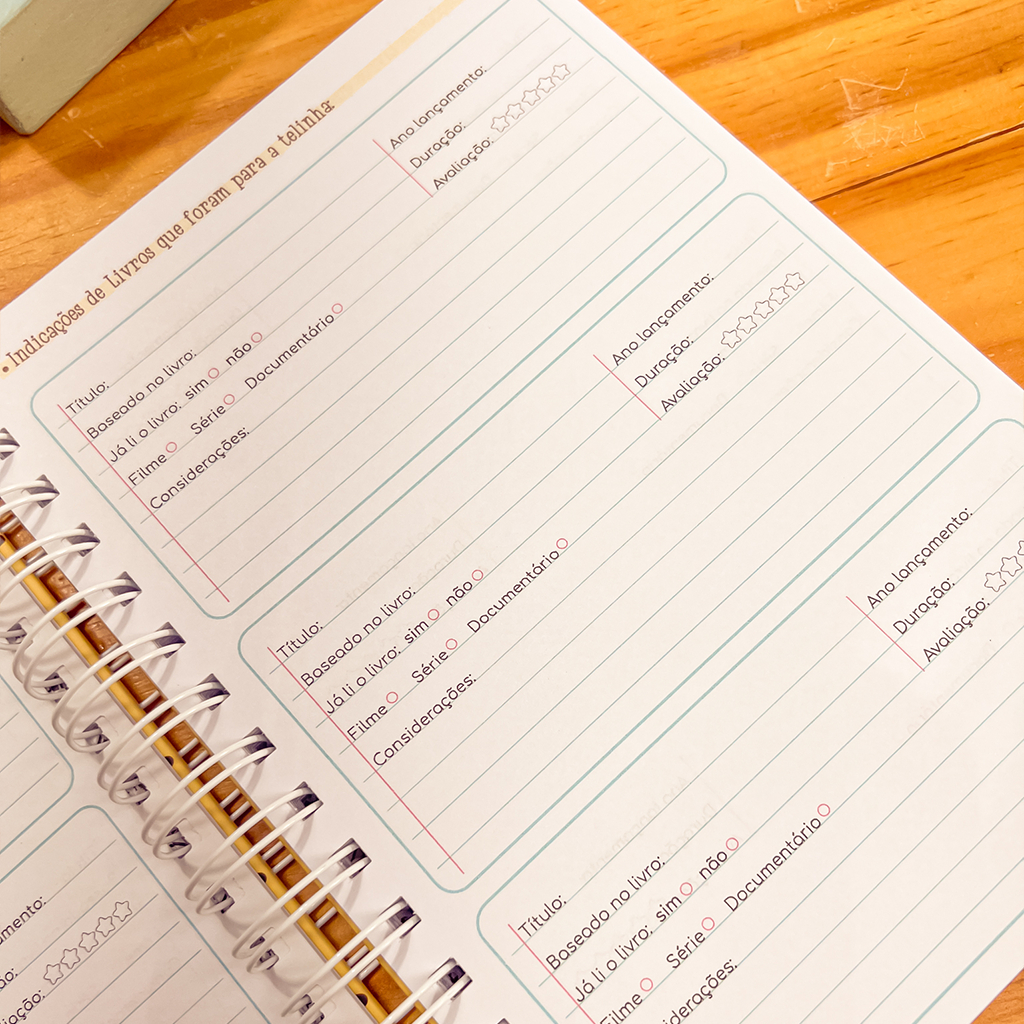 • Indicações de Livros que foram para a telinha:
Título:
Ano lançamento:
Baseado no livro:
Duração:
Já li o livro: sim não
Avaliação:
Filme Série Documentário
Considerações:
Título:
Ano lançamento:
Baseado no livro:
Duração:
Já li o livro: sim não
Avaliação:
Filme Série Documentário
Considerações:
Título:
Ano lançamento:
Baseado no livro:
Duração:
Já li o livro: sim não
Avaliação:
Filme Série Documentário